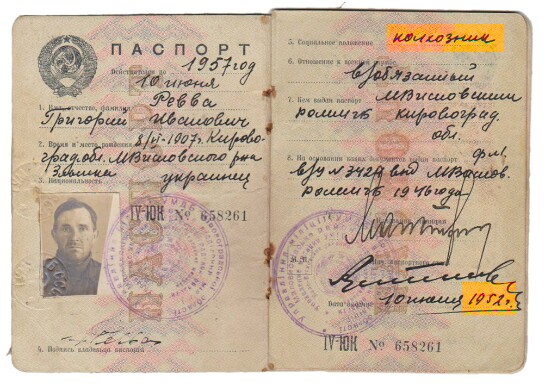 ПАСПОРТ
Действителен до 1957 год
10 июня
1. Имя, отчество, фамилия Ревва
Григорий Иванович
2. Время и место рождения 8/VI-1907г. Кирово-
град.обл. М.Висковского р-на
3. Национальность украинец
IV-ЮК № 658261
4. Подпись владельца паспорта
5. Социальное положение колхозник
6. Отношение к военной службе
в/обязанный
7. Кем выдан паспорт М.Висковским
Кировоград.
обл.
8. На основании каких документов выдан паспорт
в/у № 3424 выд М.Висков.
1946 года
10 июня 1952 г.
IV-ЮК № 658261